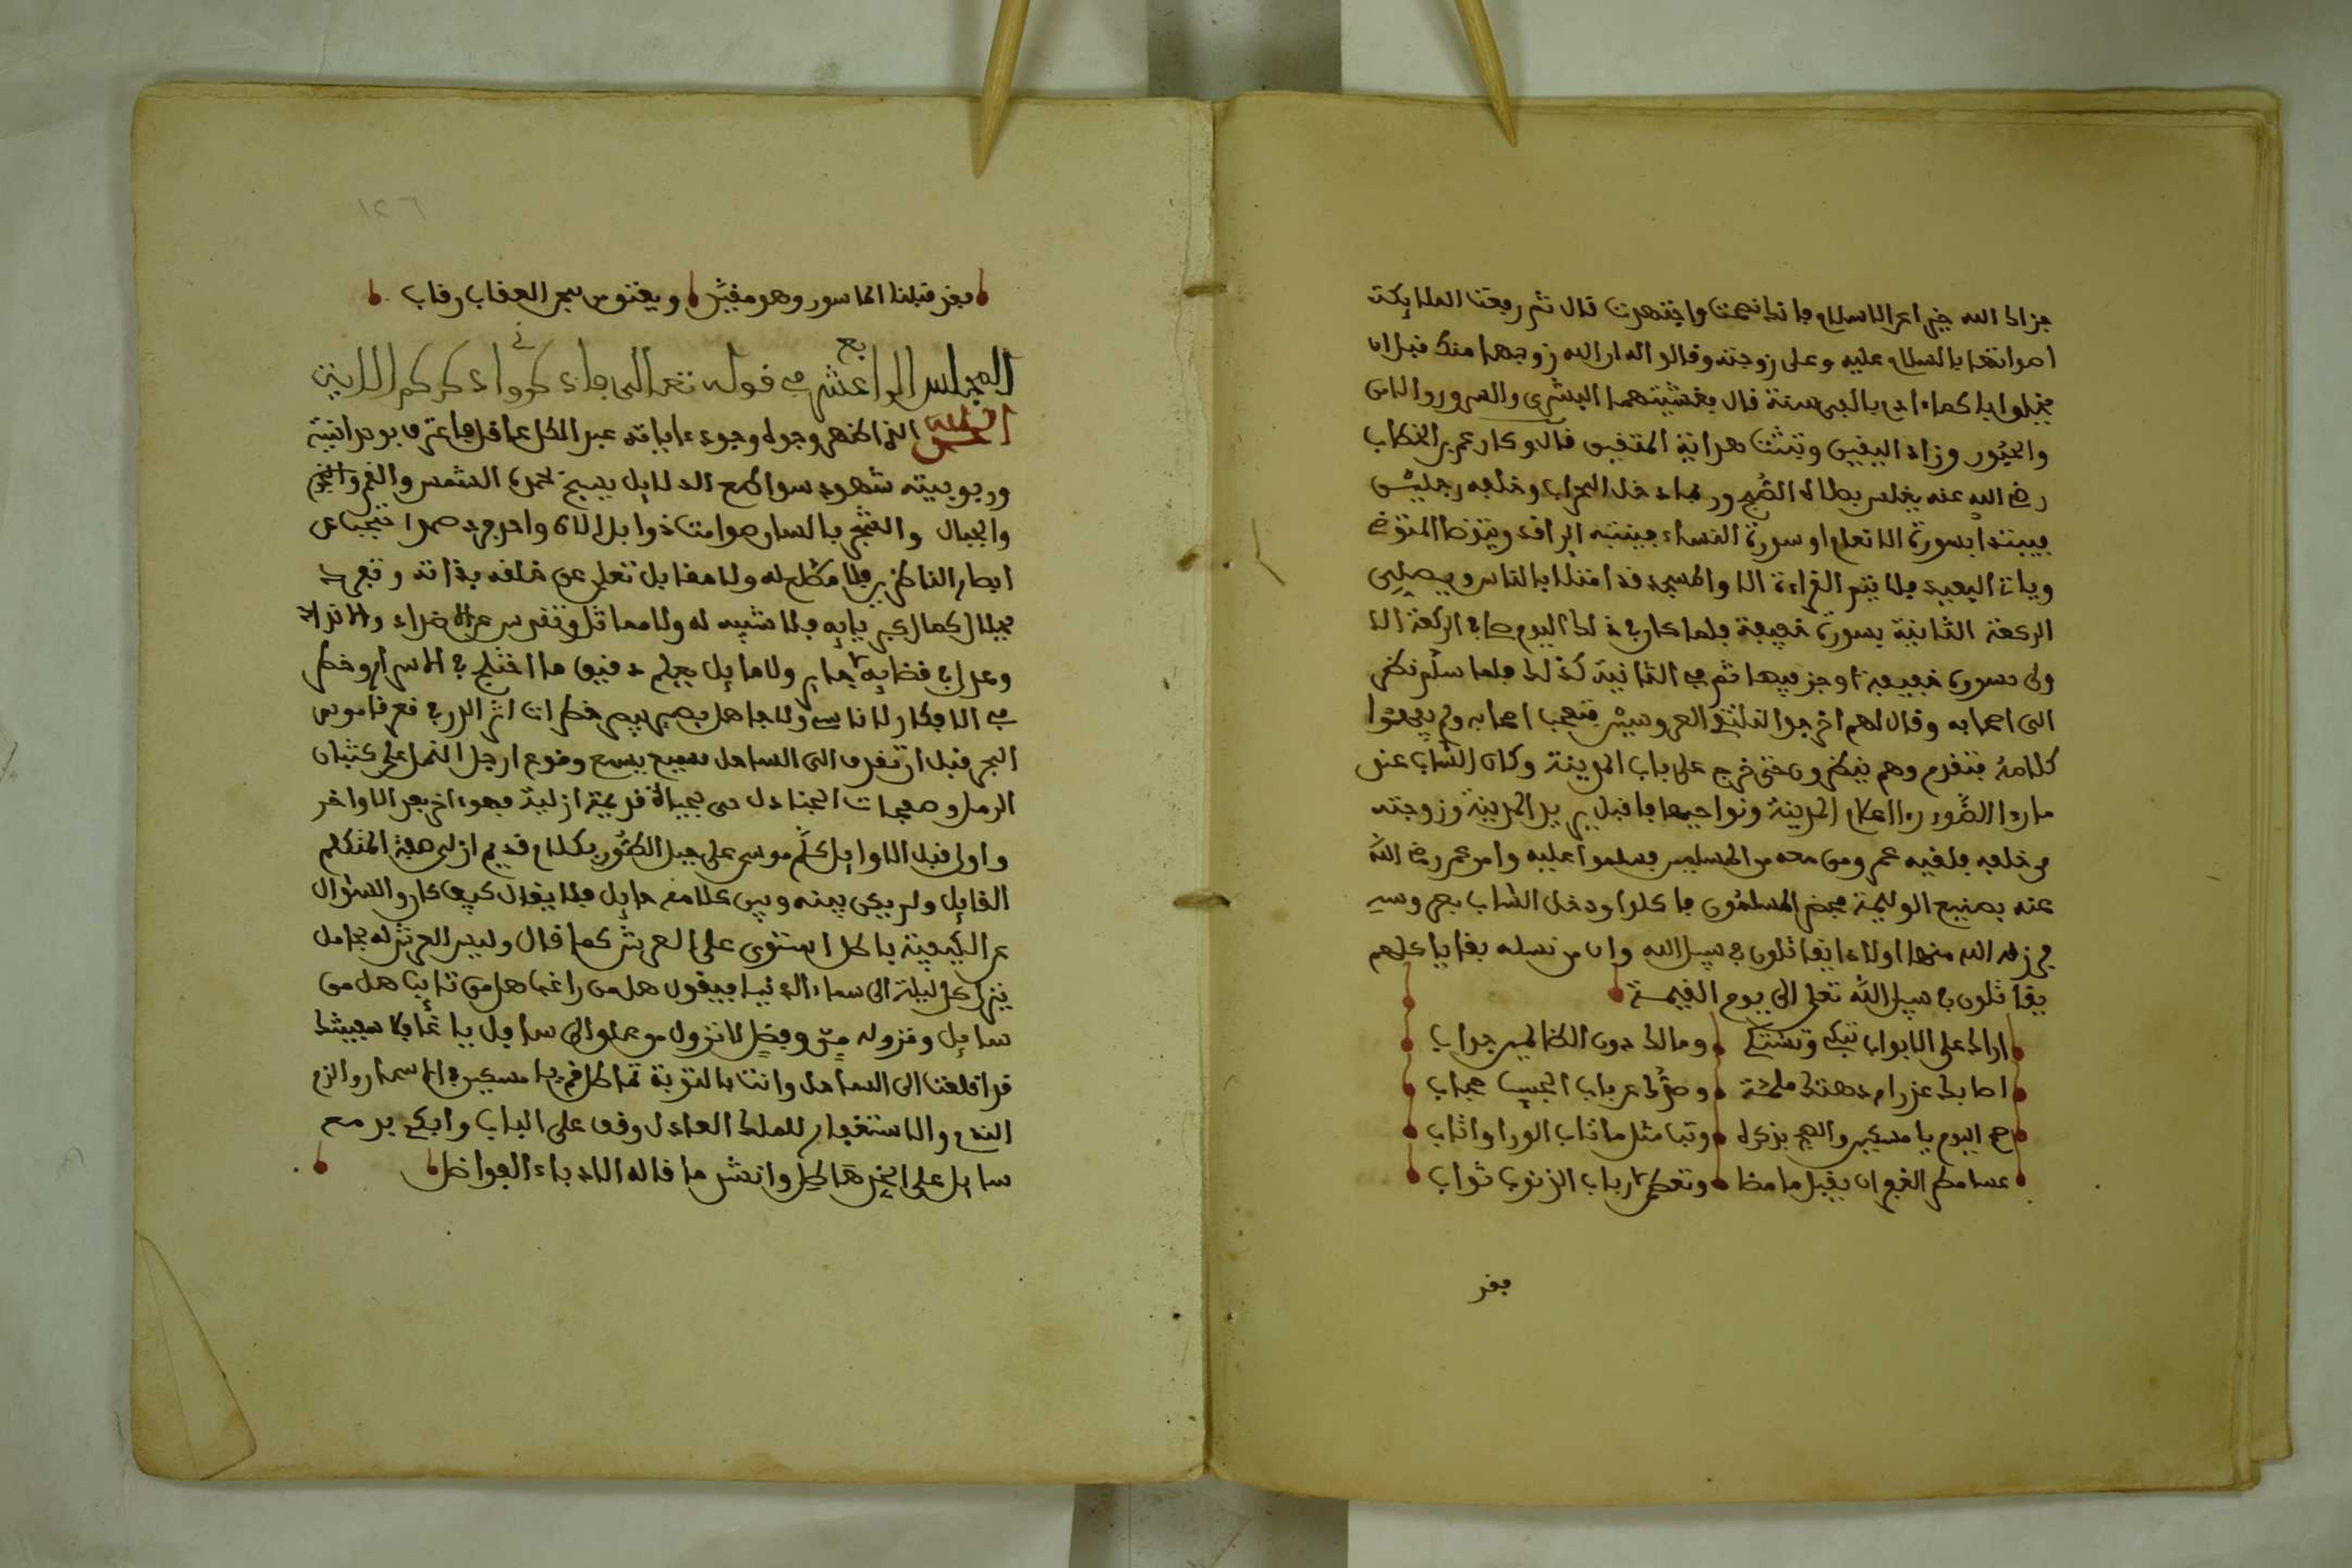 جزاك الله خيرا عن الاسلام فانك نصحت واجتهدت قال ثم رفعت الملايكت
اصواتها بالسلام عليه وعلى زوجته وقالوا ان الله زوجها منك قبل ان
يخلق اباكما ءادم بالبى سنة قال بغشيتهما البشرى والسرور والامن
والحبور وزاد اليفين وثبتت هداية المتقين قال وكان عمر بن الخطاب
رضي الله عنه يغلس بصلاة الصبح وربما دخل المحراب وخلفه رجلين
فيبتدا بسورة الانعام او سورة النساء فينتبه الراقد ويتوضا المتوضي
وياتى البعيد فلا يتم القراءة الا والمسجد قد امتلا بالناس ويصلي
الركعة الثانية بسورة خفيفة فلما كان في ذلك اليوم صلى الركعة الا
ولى بسورة خفيفة اوجز فيها ثم في الثانية كذلك فلما سلم نظر
الى اصحابه وقال لهم اخرجوا لنلتقي العروسين فتعجب اصحابه ولم يفهموا
كلامه فتقدم وهم ينظرون حتى خرج على باب المدينة وكان الشاب عند
ما بدا الضوء راا اعلام المدينة ونواحيها فاقبل يريد المدينة وزوجته
من خلفه فلقيه عمر ومن معه من المسلمين فسلموا عليه وامر عمر رضي الله
عنه بصنيع الوليمة فحضر المسلمون فاكلوا ودخل الشاب بعروسه
فرزقه الله منها اولادا يقاتلون في سبيل الله وان من نسله بقايا كلهم
يقاتلون في سبيل الله تعلى الى يوم القيمة
اراك على الابواب تبكي وتشتكي ومالك دون الظالمين جواب
اصابك عذر ام دهتك ملمة وصدك عن باب الحبيب حجاب
اليوم يا مسكين والهج بذكره وتب مثل ما تاب الورا واثاب
عسا مظهر الغفران يقبل ما مضا وتعطى لارباب الذنوب ثواب
فقد
فقد قبلنا الماسور وهو مقيد ويعتق من سجن العقاب رقاب
١٢٦
المجلس الرابع عشر في قوله تعلى فاذكروني اذكركم الاية
الحمد لله الذي اظهر وجوده وجود ءاياته عبد الكل عاقل فاعترف بوحدانيته
وربوبيته شهود سواطع الدلايل يسبح بحمده الشمس والقمر والنجوم
والجبال والشجر بالسن صوامت ذوابل الاه واحد فرد صمد احتجب عن
ابصار الناظرين فلا مطلع له ولا مقابل تعلى عن خلقه بذاته وتفرد
بجلال كمال كبريايه فلا شبيه له ولا مماثل وتقدس عن الاضداد والانداد
وعدل في قضايه جاير ولا مايل يعلم دقيق ما اختلج في الاسرار وخطر
في الافكار لا ناس ولا جاهل بصير يبصر خطرات اثر الذر في قعر قاموس
البحر قبل ان تقذف الى الساحل سميع يسمع وقوع ارجل النمل على كثبان
الرمل وصفحات الجنادل حي بحياة قديمة ازلية فهو ءاخر بعد الاواخر
واول قبل الاوايل كلم موسى على جبل الطور بكلام قديم ازلي صفة المتكلم
القايل ولم يكن بينه وبين كلامه حايل فلا يقال كيف كان والسؤال
عن الكيفية باطل استوى على العرش كما قال وليس العرش له بحامل
ينزل كل ليلة الى سماء الدنيا فيقول هل من راغب هل من تايب هل من
سايل ونزوله من وفضل لا نزول من علو الى سافل يا غافلا سفينتك
قد اقلعت الى الساحل وانت بالتوبة تماطل قم يا مسكين في الاسحار والزم
الندم والاستغفار للملك العادل وقف على الباب وابك بدمع
سايل على الخد هاطل وانشد ما قاله الادباء الفواضل